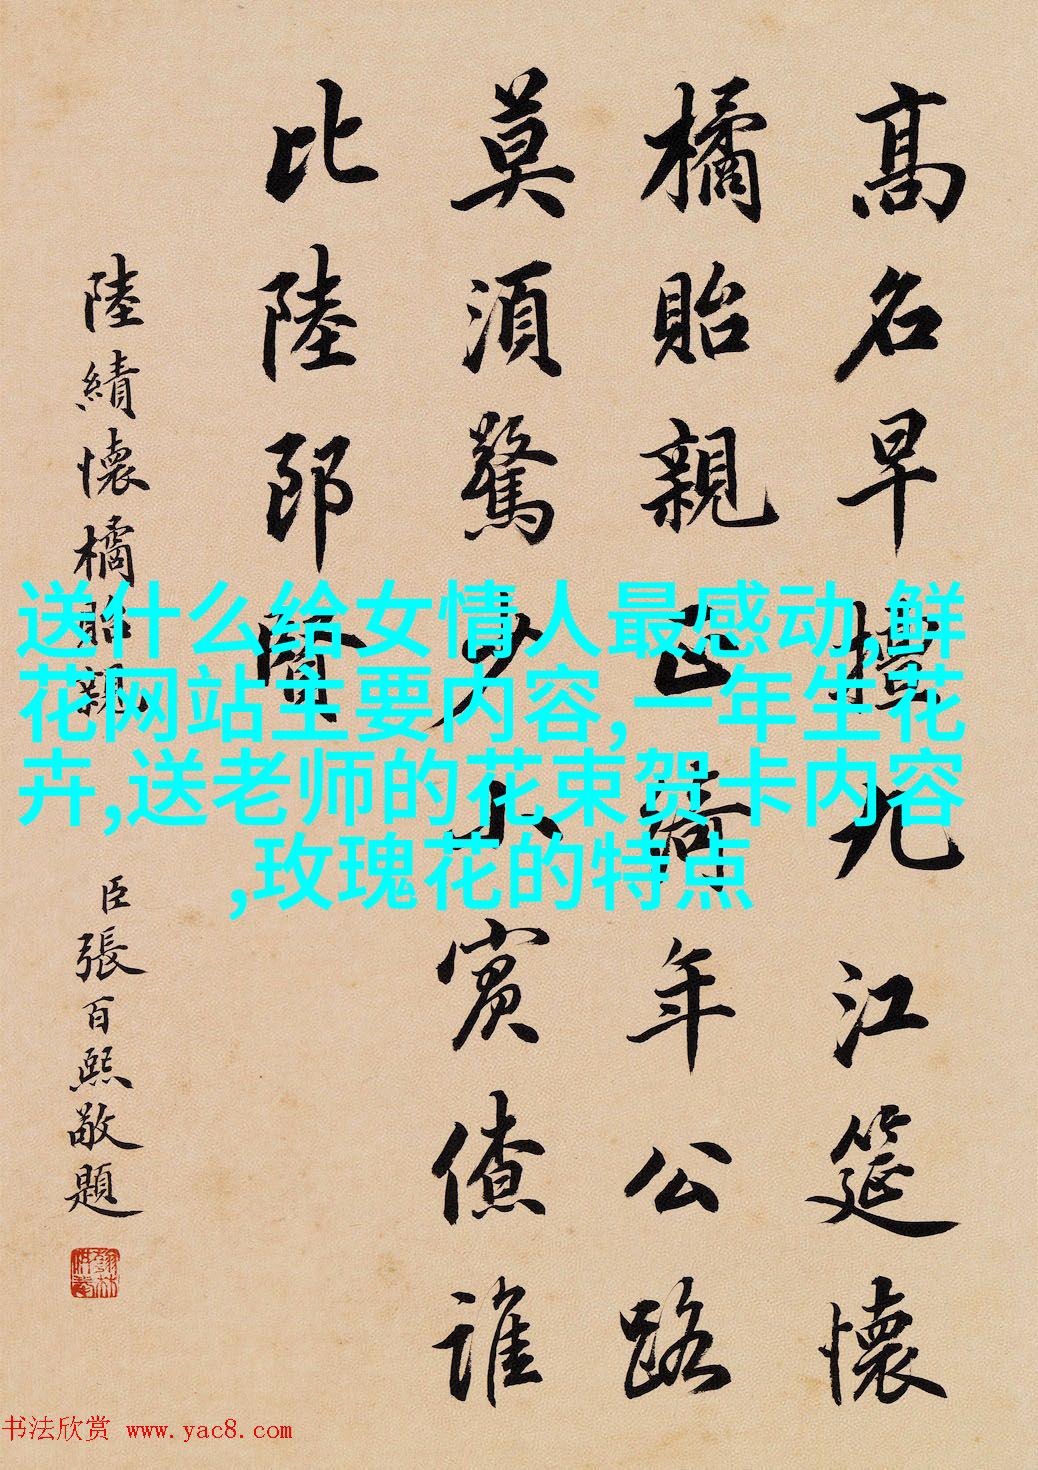 高名早擅九江筵懷
橘貽親正綺年公路
莫須驚少小賓僚誰
比陸郎賢
陸績懷橘貽親
臣張百熙敬題
送什么给女情人最感动,鲜
花网站主要内容,一年生花
卉,送老师的花束贺卡内容
,玫瑰花的特点
书法欣赏 www.yac8.com